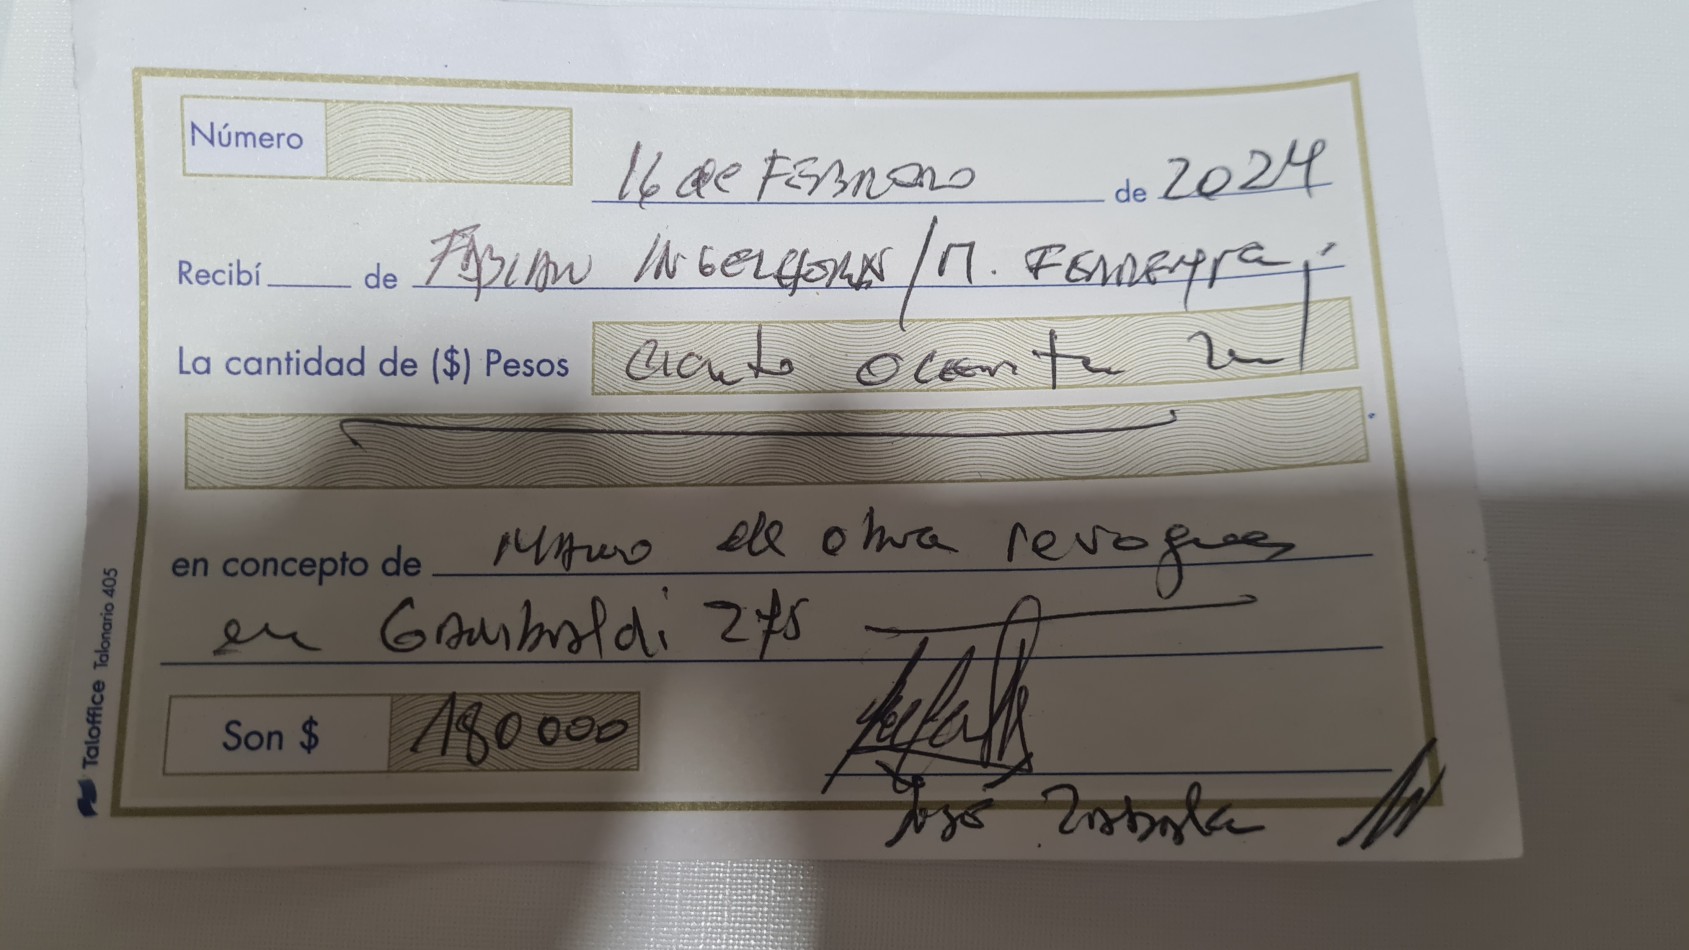 Número
16 de FEBRERO de 2024
Recibí de FABIAN INGELHORN / M. FERREYRA.
La cantidad de ($) Pesos ciento ochenta mil
en concepto de Mano de obra revoques
en Garibaldi 275
Son $ 180000
José Zabala
Taloffice Talonario 405